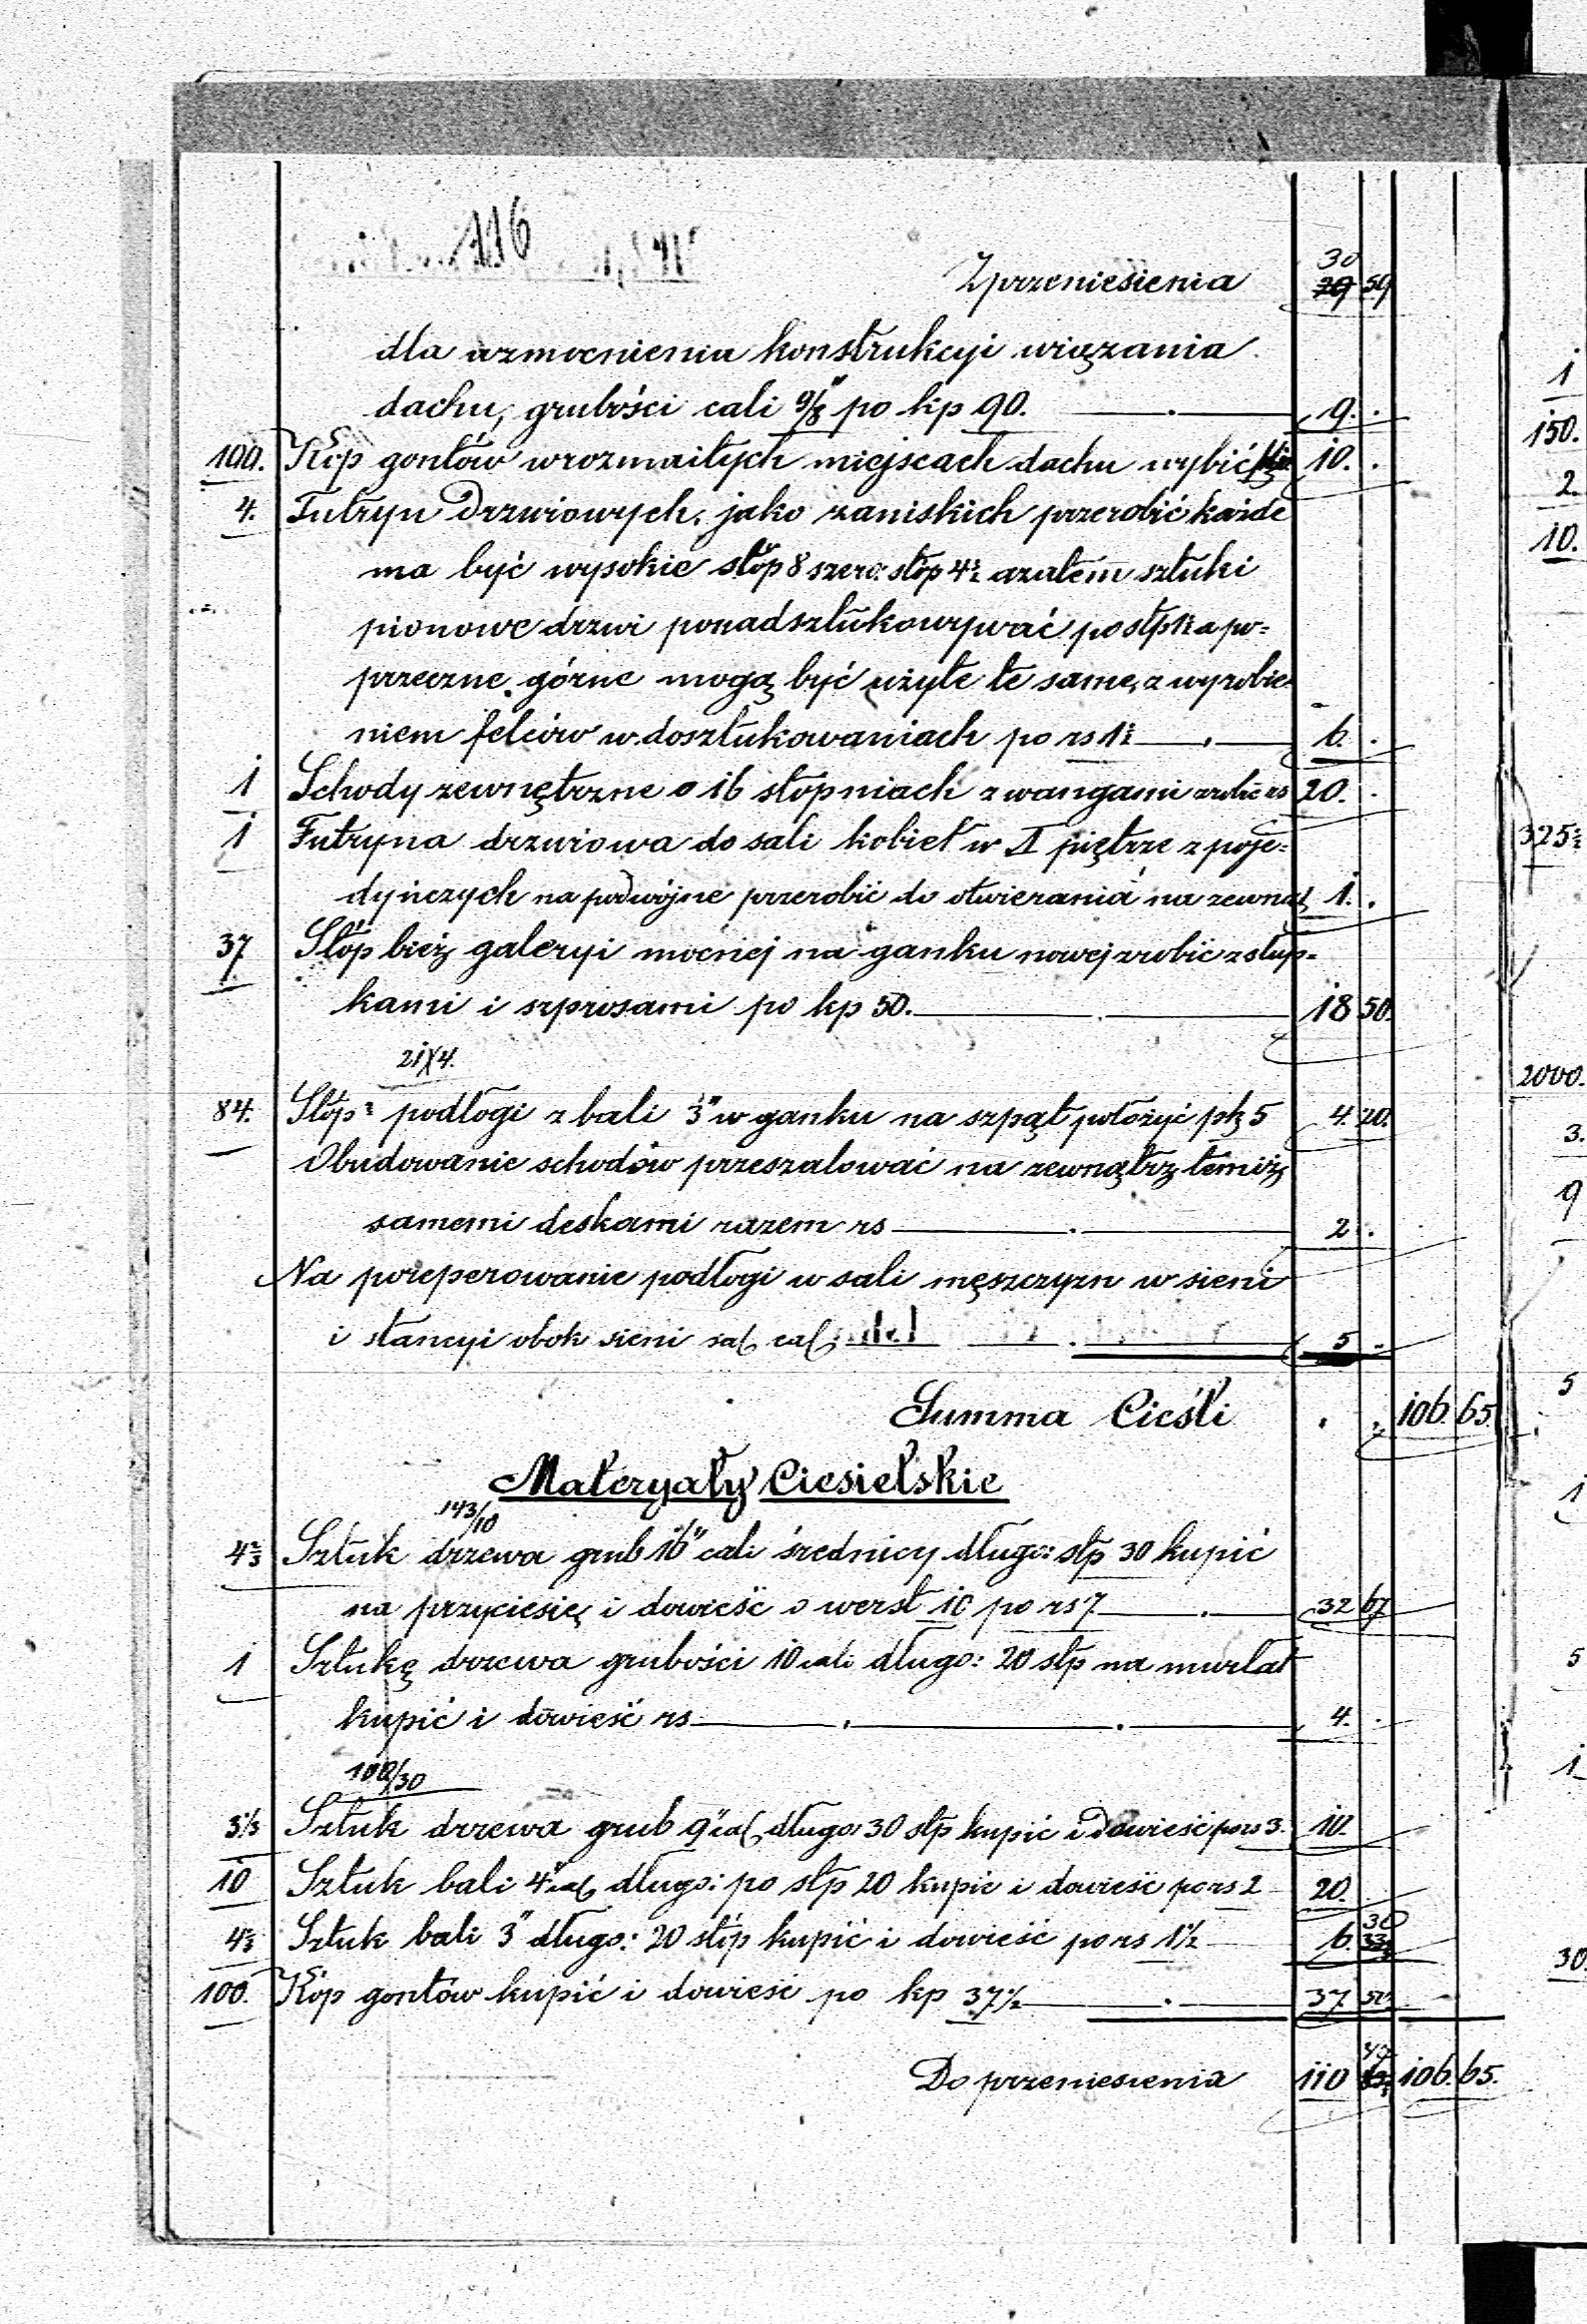 116
Z przeniesienia 30 29 59
dla wzmocnienia konstrukcyi wiązania
dachu, grubości cali 9/8" po kp 90. 9.
100. Kóp gontów w rozmaitych miejscach dachu wybić 10.
4. Futryn Drzwiowych, jako zaniskich przerobić każde
ma być wysokie stóp 8 szero: stóp 4½ azatem sztuki
pionowe drzwi ponadsztukowywać po stp 1½ a po=
przeczne górne mogą być użyte te same, z wyrobie=
niem felców w dosztukowaniach po rs 1½ 6.
1 Schody zewnętrzne o 16 stopniach z wangami zrobić rs 20.
1 Futryna drzwiowa do sali kobiet w I piętrze z poje=
dyńczych na podwójne przerobić do otwierania na zewnąt 1.
37 Stóp bież galeryi mocnej na ganku nowej zrobić z słup=
kami i szprosami po kp 50. 18 50.
21X4.
84. Stóp² podłogi z bali 3" w ganku na szpąt położyć pk 5 4. 20.
Obudowanie schodów przeszalować na zewnątrz temiż
samemi deskami razem rs 2.
Na poreperowanie podłogi w sali męszczyzn w sieni
i stancyi obok sieni 5
Summa Cieśli 106. 65.
Materyały Ciesielskie
143/10
4⅔ Sztuk drzewa grub 16" cali średnicy długo: stp 30 kupić
na przyciesię i dowieść o werst 10 po rs 7 32 67
1 Sztukę drzewa grubości 10 cali długo: 20 stp na murłat
kupić i dowieść rs 4.
100/30
3⅓ Sztuk drzewa grub 9" cal długo: 30 stp kupić i Dowieść po rs 3. 10.
10 Sztuk bali 4" cal długo: po stp 20 kupić i dowieść po rs 2 20.
Sztuk bali 3" długo: 20 stóp kupić i dowieść po rs 1½ 6. 30
100. Kóp gontów kupić i dowieść po kp 37½ 37 50.
Do przeniesienia 110 106. 65.
1
150.
2.
10.
325½
2000.
3.
9
5
1
5
1
30.